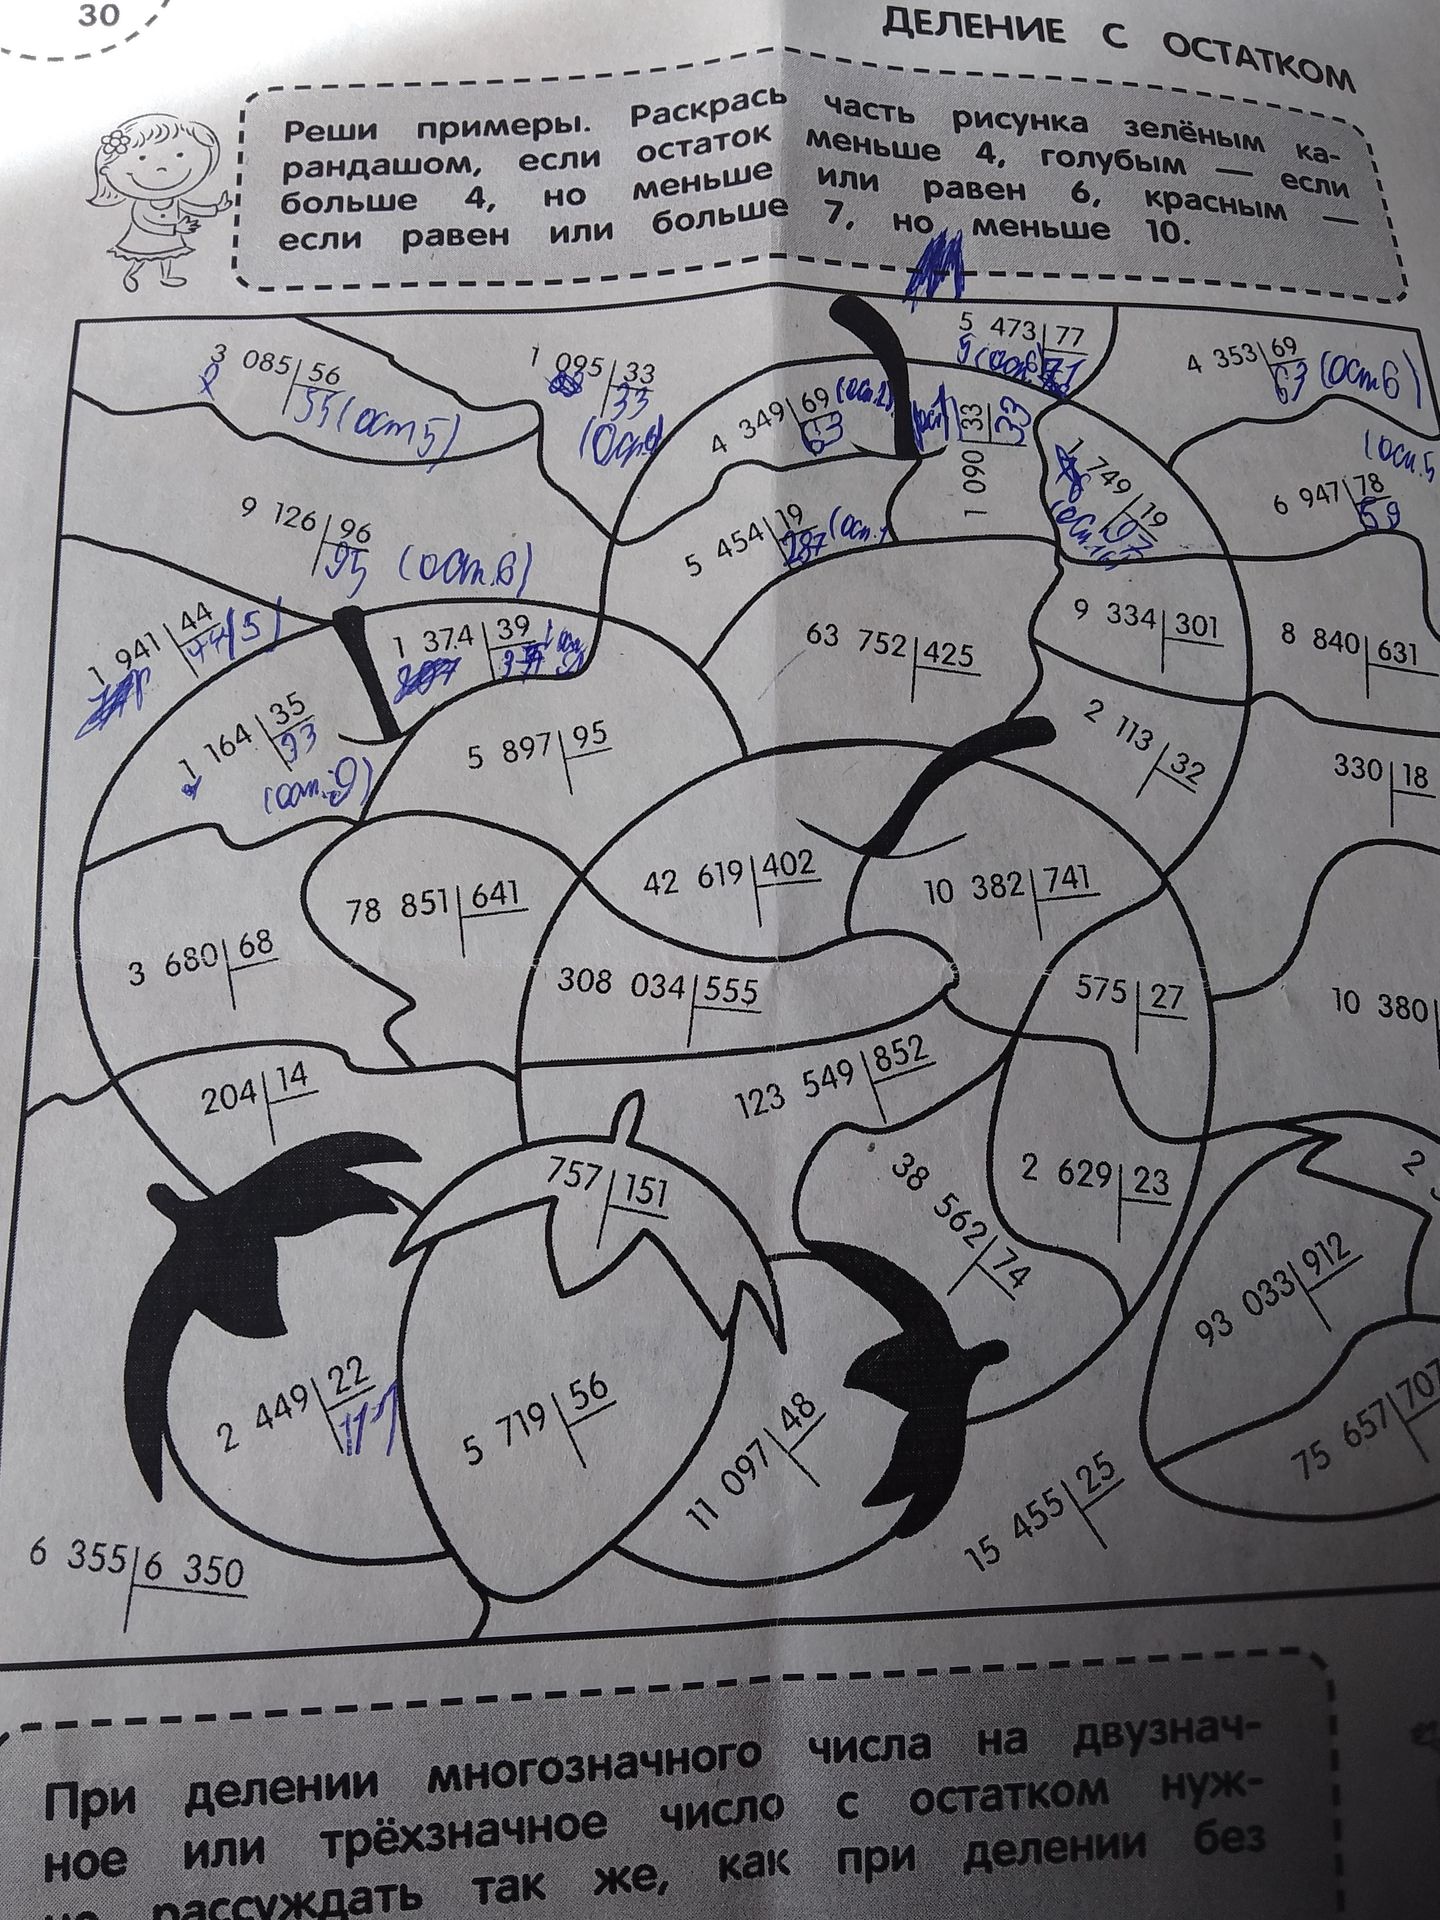 30
ДЕЛЕНИЕ С ОСТАТКОМ
Реши примеры. Раскрась часть рисунка зелёным ка-
рандашом, если остаток меньше 4, голубым — если
больше 4, но меньше или равен 6, красным —
если равен или больше 7, но меньше 10.
5 473 77
71
3 085 56
55 (ост 5)
1 095 33
33
4 353 69
63 (ост 6)
4 349 69
63
1 090 33
33
1 749 19
(ост.5
6 947 78
9 126 96
95 (ост.6)
5 454 19
287
1 941 44
44 (5)
1 374 39
63 752 425
9 334 301
8 840 631
1 164 35
33
(ост. 9)
5 897 95
2 113 32
330 18
78 851 641
42 619 402
10 382 741
3 680 68
308 034 555
575 27
10 380
204 14
123 549 852
757 151
38 562 74
2 629 23
2
93 033 912
2 449 22
111
5 719 56
11 097 48
75 657 707
15 455 25
6 355 6 350
При делении многозначного числа на двузнач-
ное или трёхзначное число с остатком нуж-
рассуждать так же, как при делении без